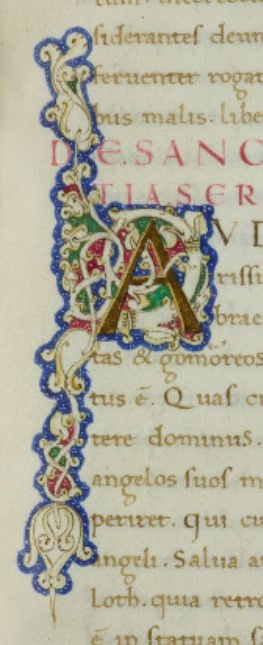 siderantes deum
ferventer rogat
bus malis. libe
DE SANC
TIA SER
AVD
rissi
brac
tas & gomoreos
tus ē. Quas ci
tere dominus.
angelos suos m
periret. qui cu
angeli. Salua a
Loth. quia retro
ē in statuam sa